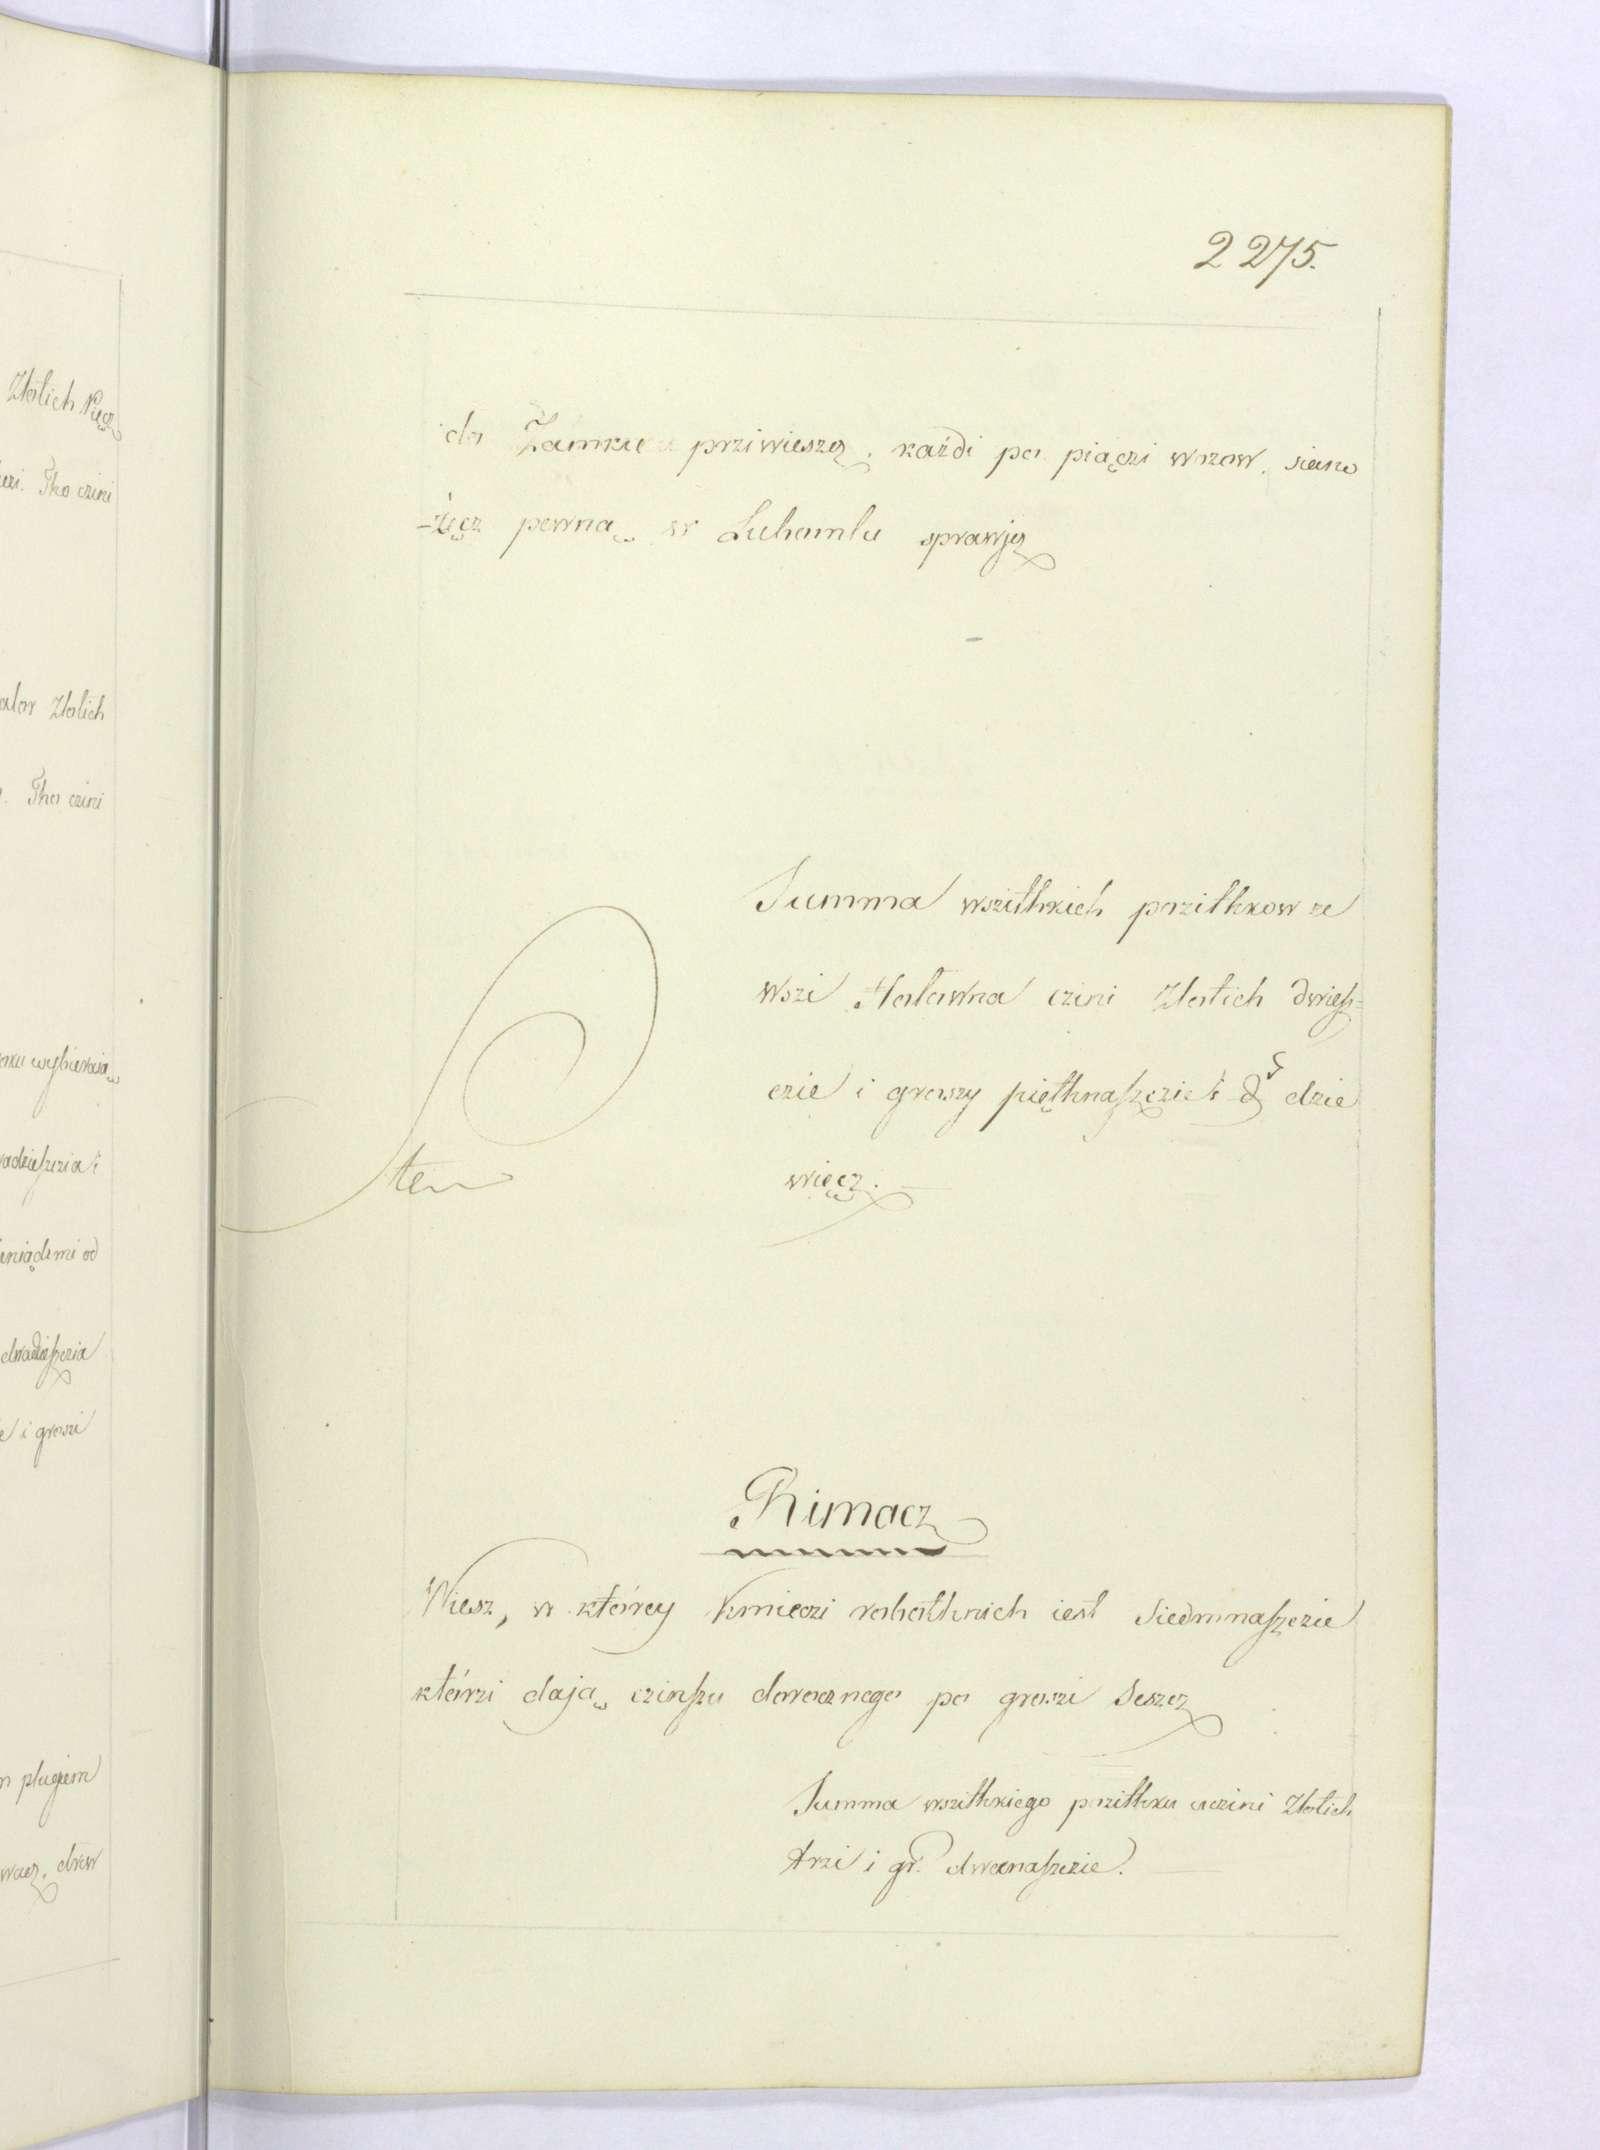 Złotich Pięcz
czi. Tho czini
Złotich
Tho czini
wybieraią
od
dwadzieſzczia
i groszi
plugiem
drew
2275.
do Zamku prziwieszcz, każdi po piączi wozow, siano
-żęcz pewną w Luhomlu sprawię
Summa wszithkich pozithkow ze
wszi Hołowna czini Złotich dwieſ=
czie i groszy pięthnaſzczie i d dzie
więcz.
ten
Rimacz
Wiesz, w którey kmieczi robothnich iest Siedmnaſzczie
którzi dają czinſzu dorocznego po groszi Seszcz
Summa wszithkiego pozithku uczini Złotich
trzi i gr. dwanaſzczie.